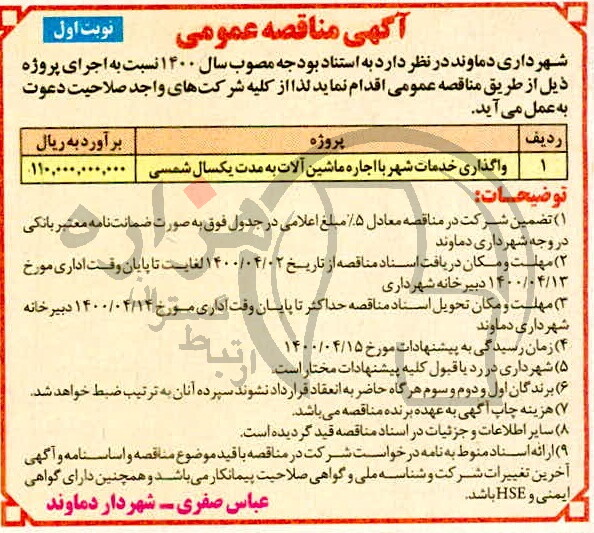 آگهی مناقصه عمومی
نوبت اول
شهرداری دماوند در نظر دارد به استناد بودجه مصوب سال ۱۴۰۰ نسبت به اجرای پروژه
ذیل از طریق مناقصه عمومی اقدام نماید لذا از کلیه شرکت‌های واجد صلاحیت دعوت
به عمل می‌آید.
ردیف پروژه برآورد به ریال
۱ واگذاری خدمات شهر با اجاره ماشین آلات به مدت یکسال شمسی ۱۱۰,۰۰۰,۰۰۰,۰۰۰
توضیحات:
۱) تضمین شرکت در مناقصه معادل ۵٪ مبلغ اعلامی در جدول فوق به صورت ضمانت‌نامه معتبر بانکی
در وجه شهرداری دماوند
۲) مهلت و مکان دریافت اسناد مناقصه از تاریخ ۱۴۰۰/۰۴/۰۲ لغایت تا پایان وقت اداری مورخ
۱۴۰۰/۰۴/۱۳ دبیرخانه شهرداری
۳) مهلت و مکان تحویل اسناد مناقصه حداکثر تا پایان وقت اداری مورخ ۱۴۰۰/۰۴/۱۴ دبیرخانه
شهرداری دماوند
۴) زمان رسیدگی به پیشنهادات مورخ ۱۴۰۰/۰۴/۱۵
۵) شهرداری در رد یا قبول کلیه پیشنهادات مختار است.
۶) برندگان اول و دوم و سوم هرگاه حاضر به انعقاد قرارداد نشوند سپرده آنان به ترتیب ضبط خواهد شد.
۷) هزینه چاپ آگهی به عهده برنده مناقصه می‌باشد.
۸) سایر اطلاعات و جزئیات در اسناد مناقصه قید گردیده است.
۹) ارائه اسناد منوط به نامه درخواست شرکت در مناقصه با قید موضوع مناقصه و اساسنامه و آگهی
آخرین تغییرات شرکت و شناسه ملی و گواهی صلاحیت پیمانکار می‌باشد و همچنین دارای گواهی
ایمنی و HSE باشد.
عباس صفری - شهردار دماوند
هزاره
ارتباط